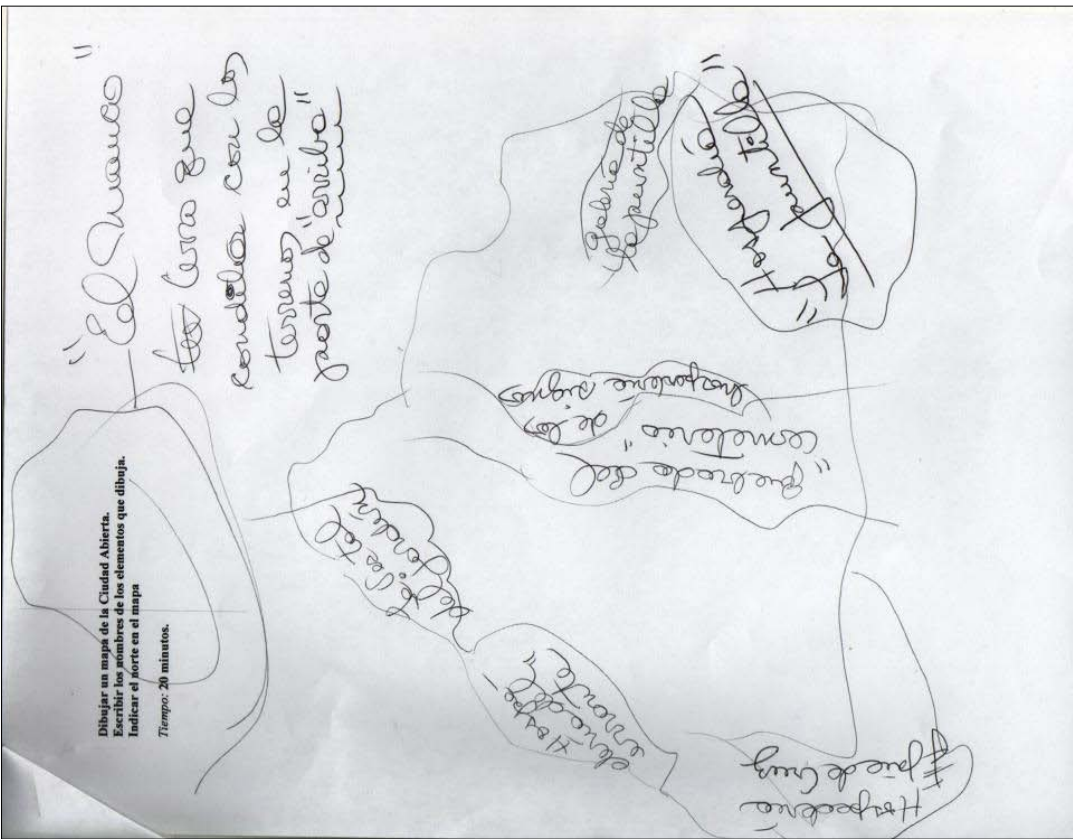 Dibujar un mapa de la Ciudad Abierta.
Escribir los nombres de los elementos que dibuja.
Indicar el norte en el mapa
Tiempo: 20 minutos.
"El Mauco"
Cerro que
con los
terrenos en la
parte de "arriba"
galería de
la puntilla
Hospedería
"La Puntilla"
"quebrada del
cementerio"
hospedería
de los
signos
Hospe-
dería del
errante
Hospedería
pie de Cruz